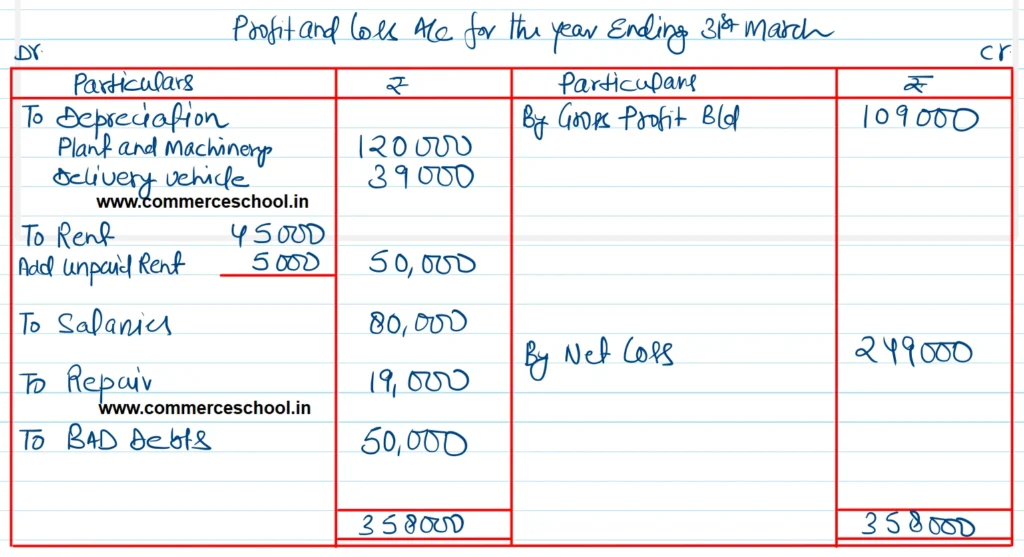 Profit and Loss A/c for the year Ending 31st March
Dr. Cr.
Particulars ₹ Particulars ₹
To Depreciation By Gross Profit B/d 109000
Plant and Machinery 120000
Delivery vehicle 39000
www.commerceschool.in
To Rent 45000
Add unpaid Rent 5000 50,000
To Salaries 80,000
By Net Loss 249000
To Repair 19,000
www.commerceschool.in
To BAD Debts 50,000
358000 358000